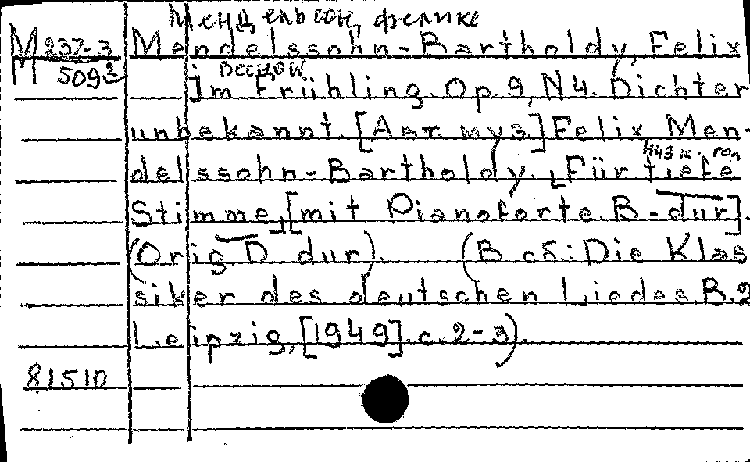 Мендельсон, Феликс
М 237-3 Mendelssohn-Bartholdy, Felix
М 509²
весной
Im Frühling. Op. 9, N4. Dichter
unbekannt. [Авт муз] Felix Men-
низк. гол
delssohn-Bartholdy. [Für tiefe
Stimme] [mit Pianoforte. B-dur].
(Orig. D dur). (В сб: Die Klas
siker des deutschen Liedes. B. 2
Leipzig, [1949]. с. 2-3).
81510